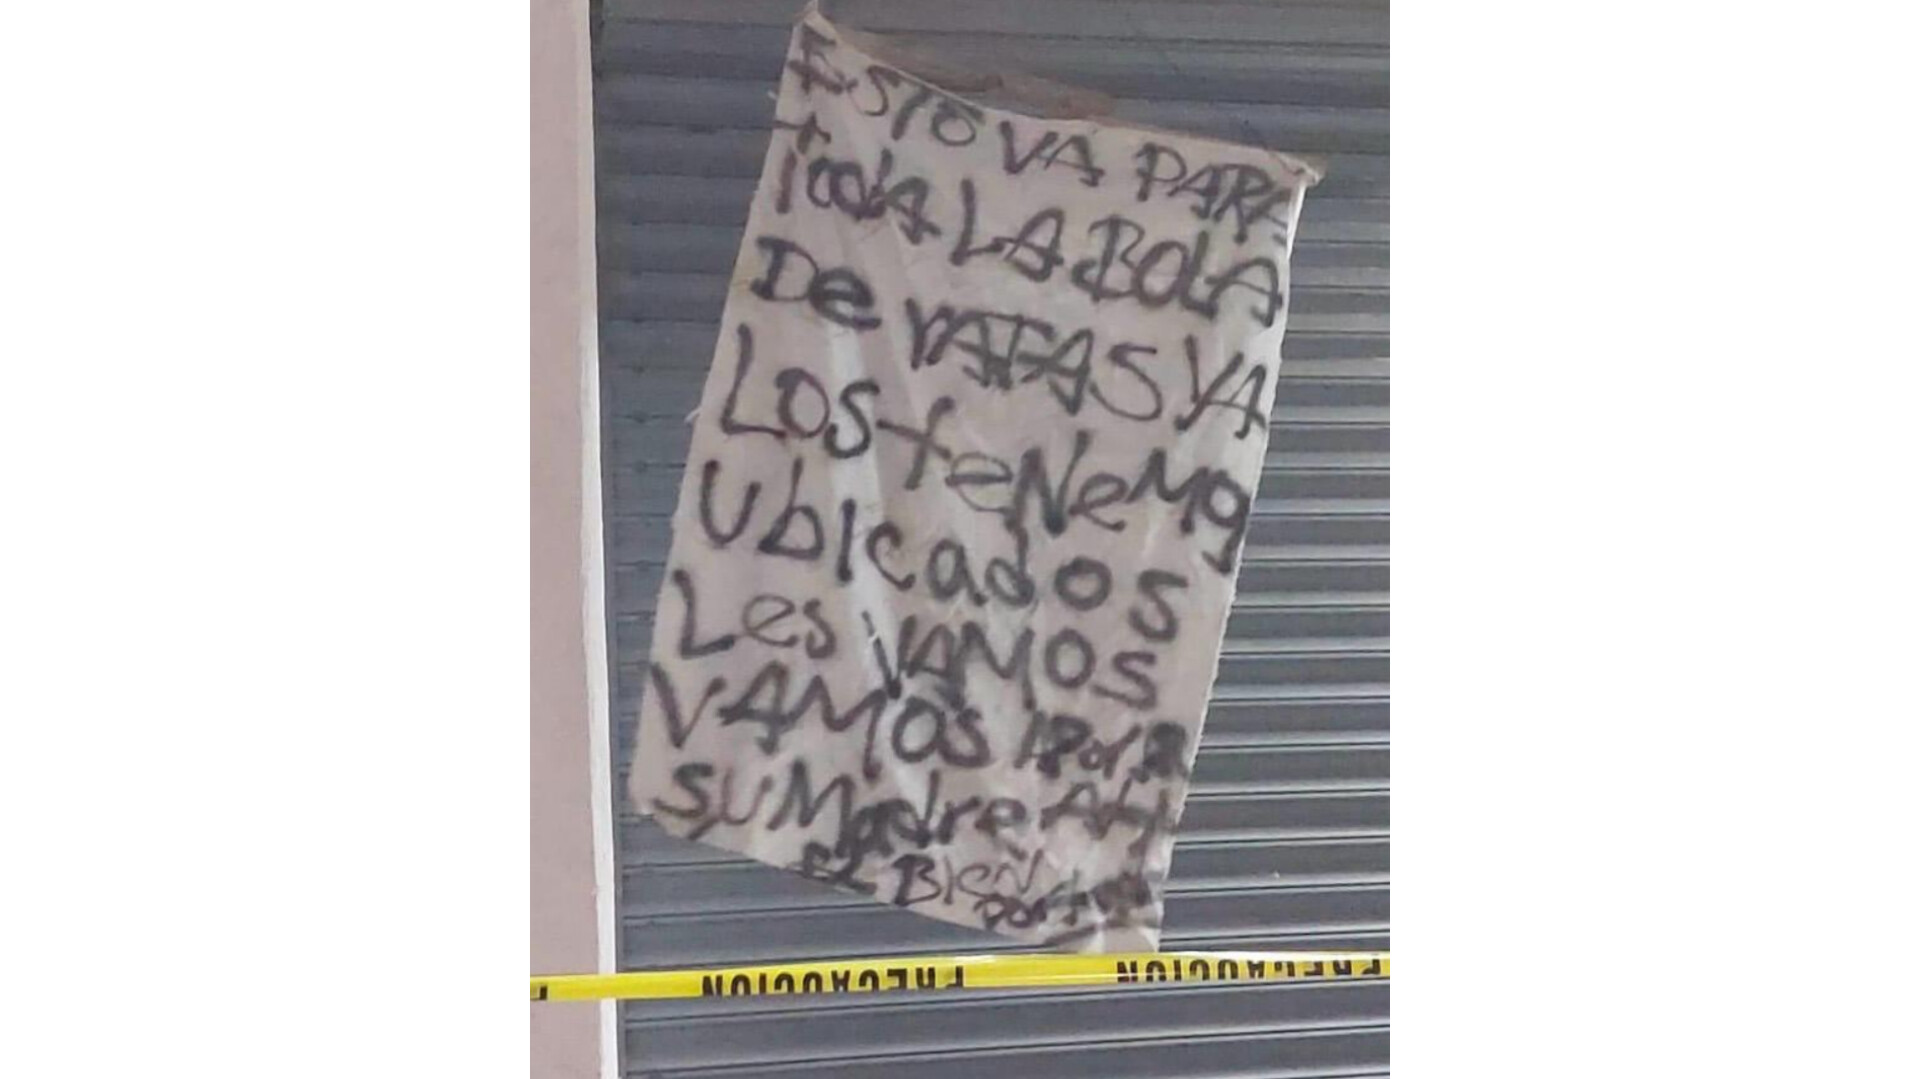 ESTO VA PARA
TodA LA BOLA
De RATAS YA
LOS teNeMO
UbIcados
Les VAMOS
VAMOS Por
SU Madre Att
EL BIeN
PRECAUCION PRECAUCION